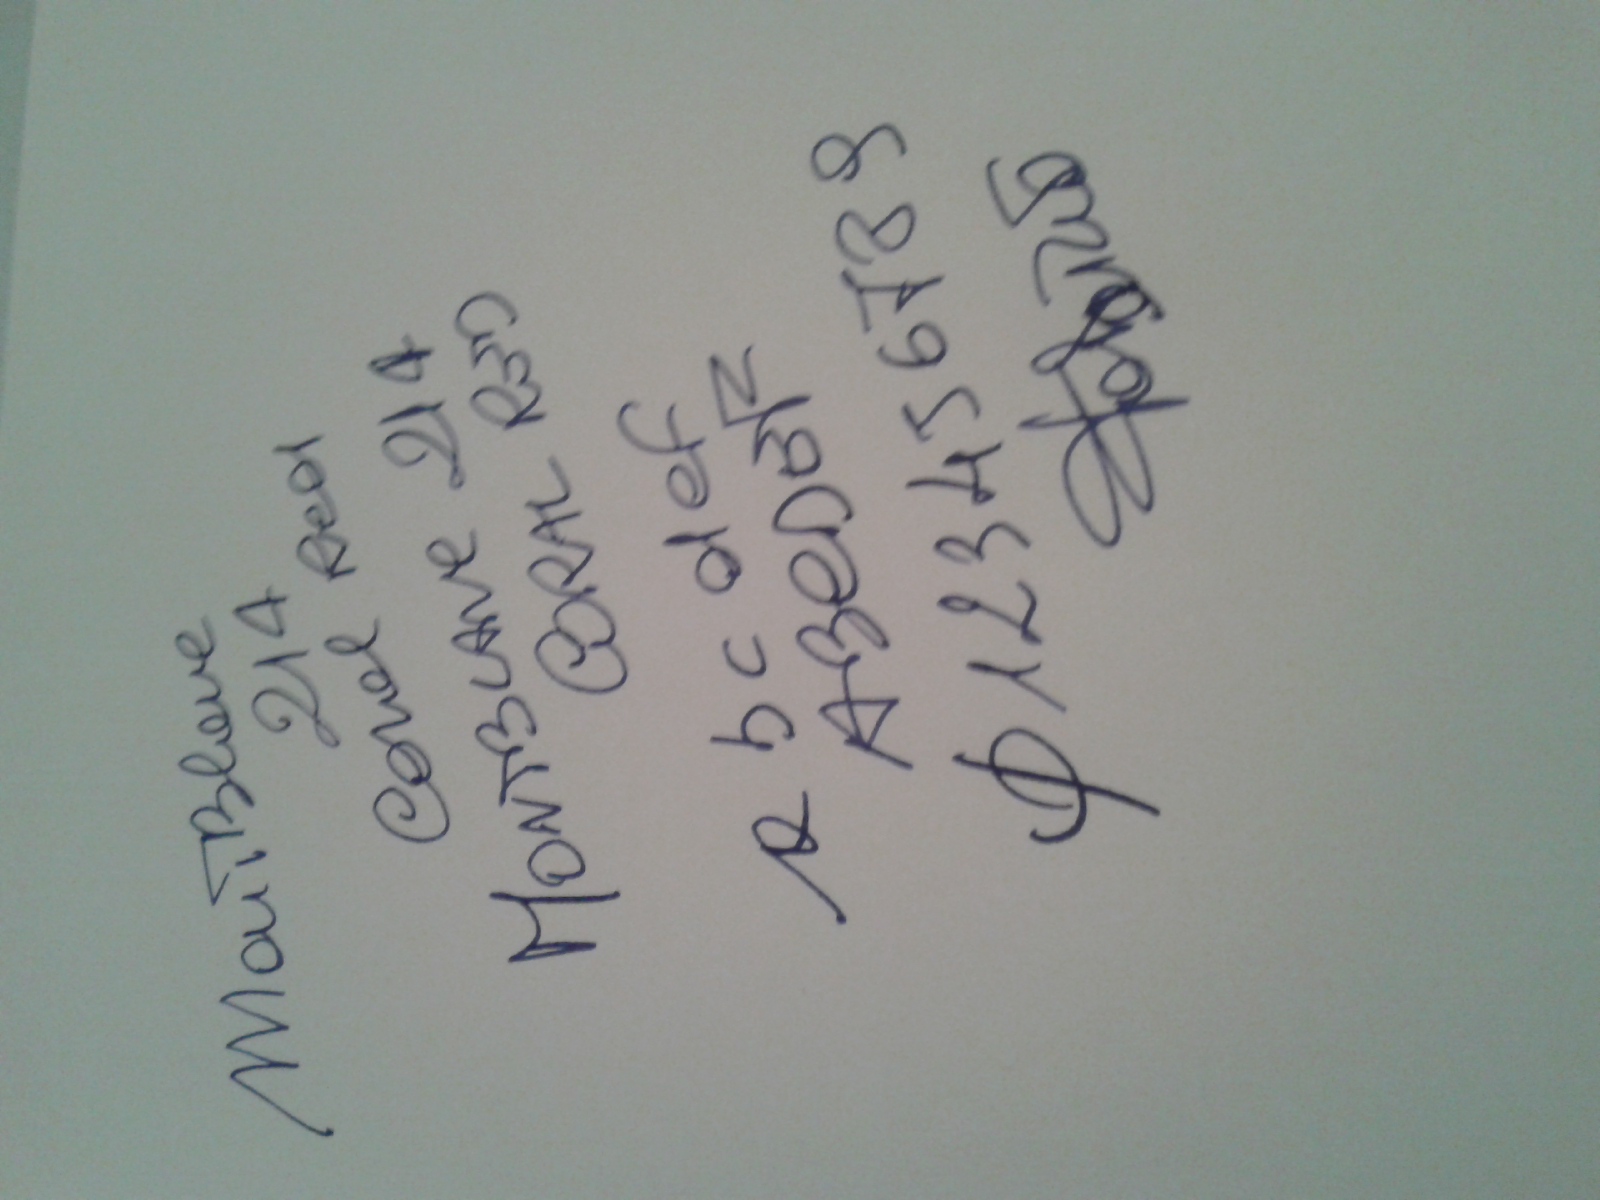 MontBlanc
214
Coral Red
MONTBLANC 214
CORAL RED
a b c d e f
ABCDEFZ
0 1 2 3 4 5 6 7 8 8